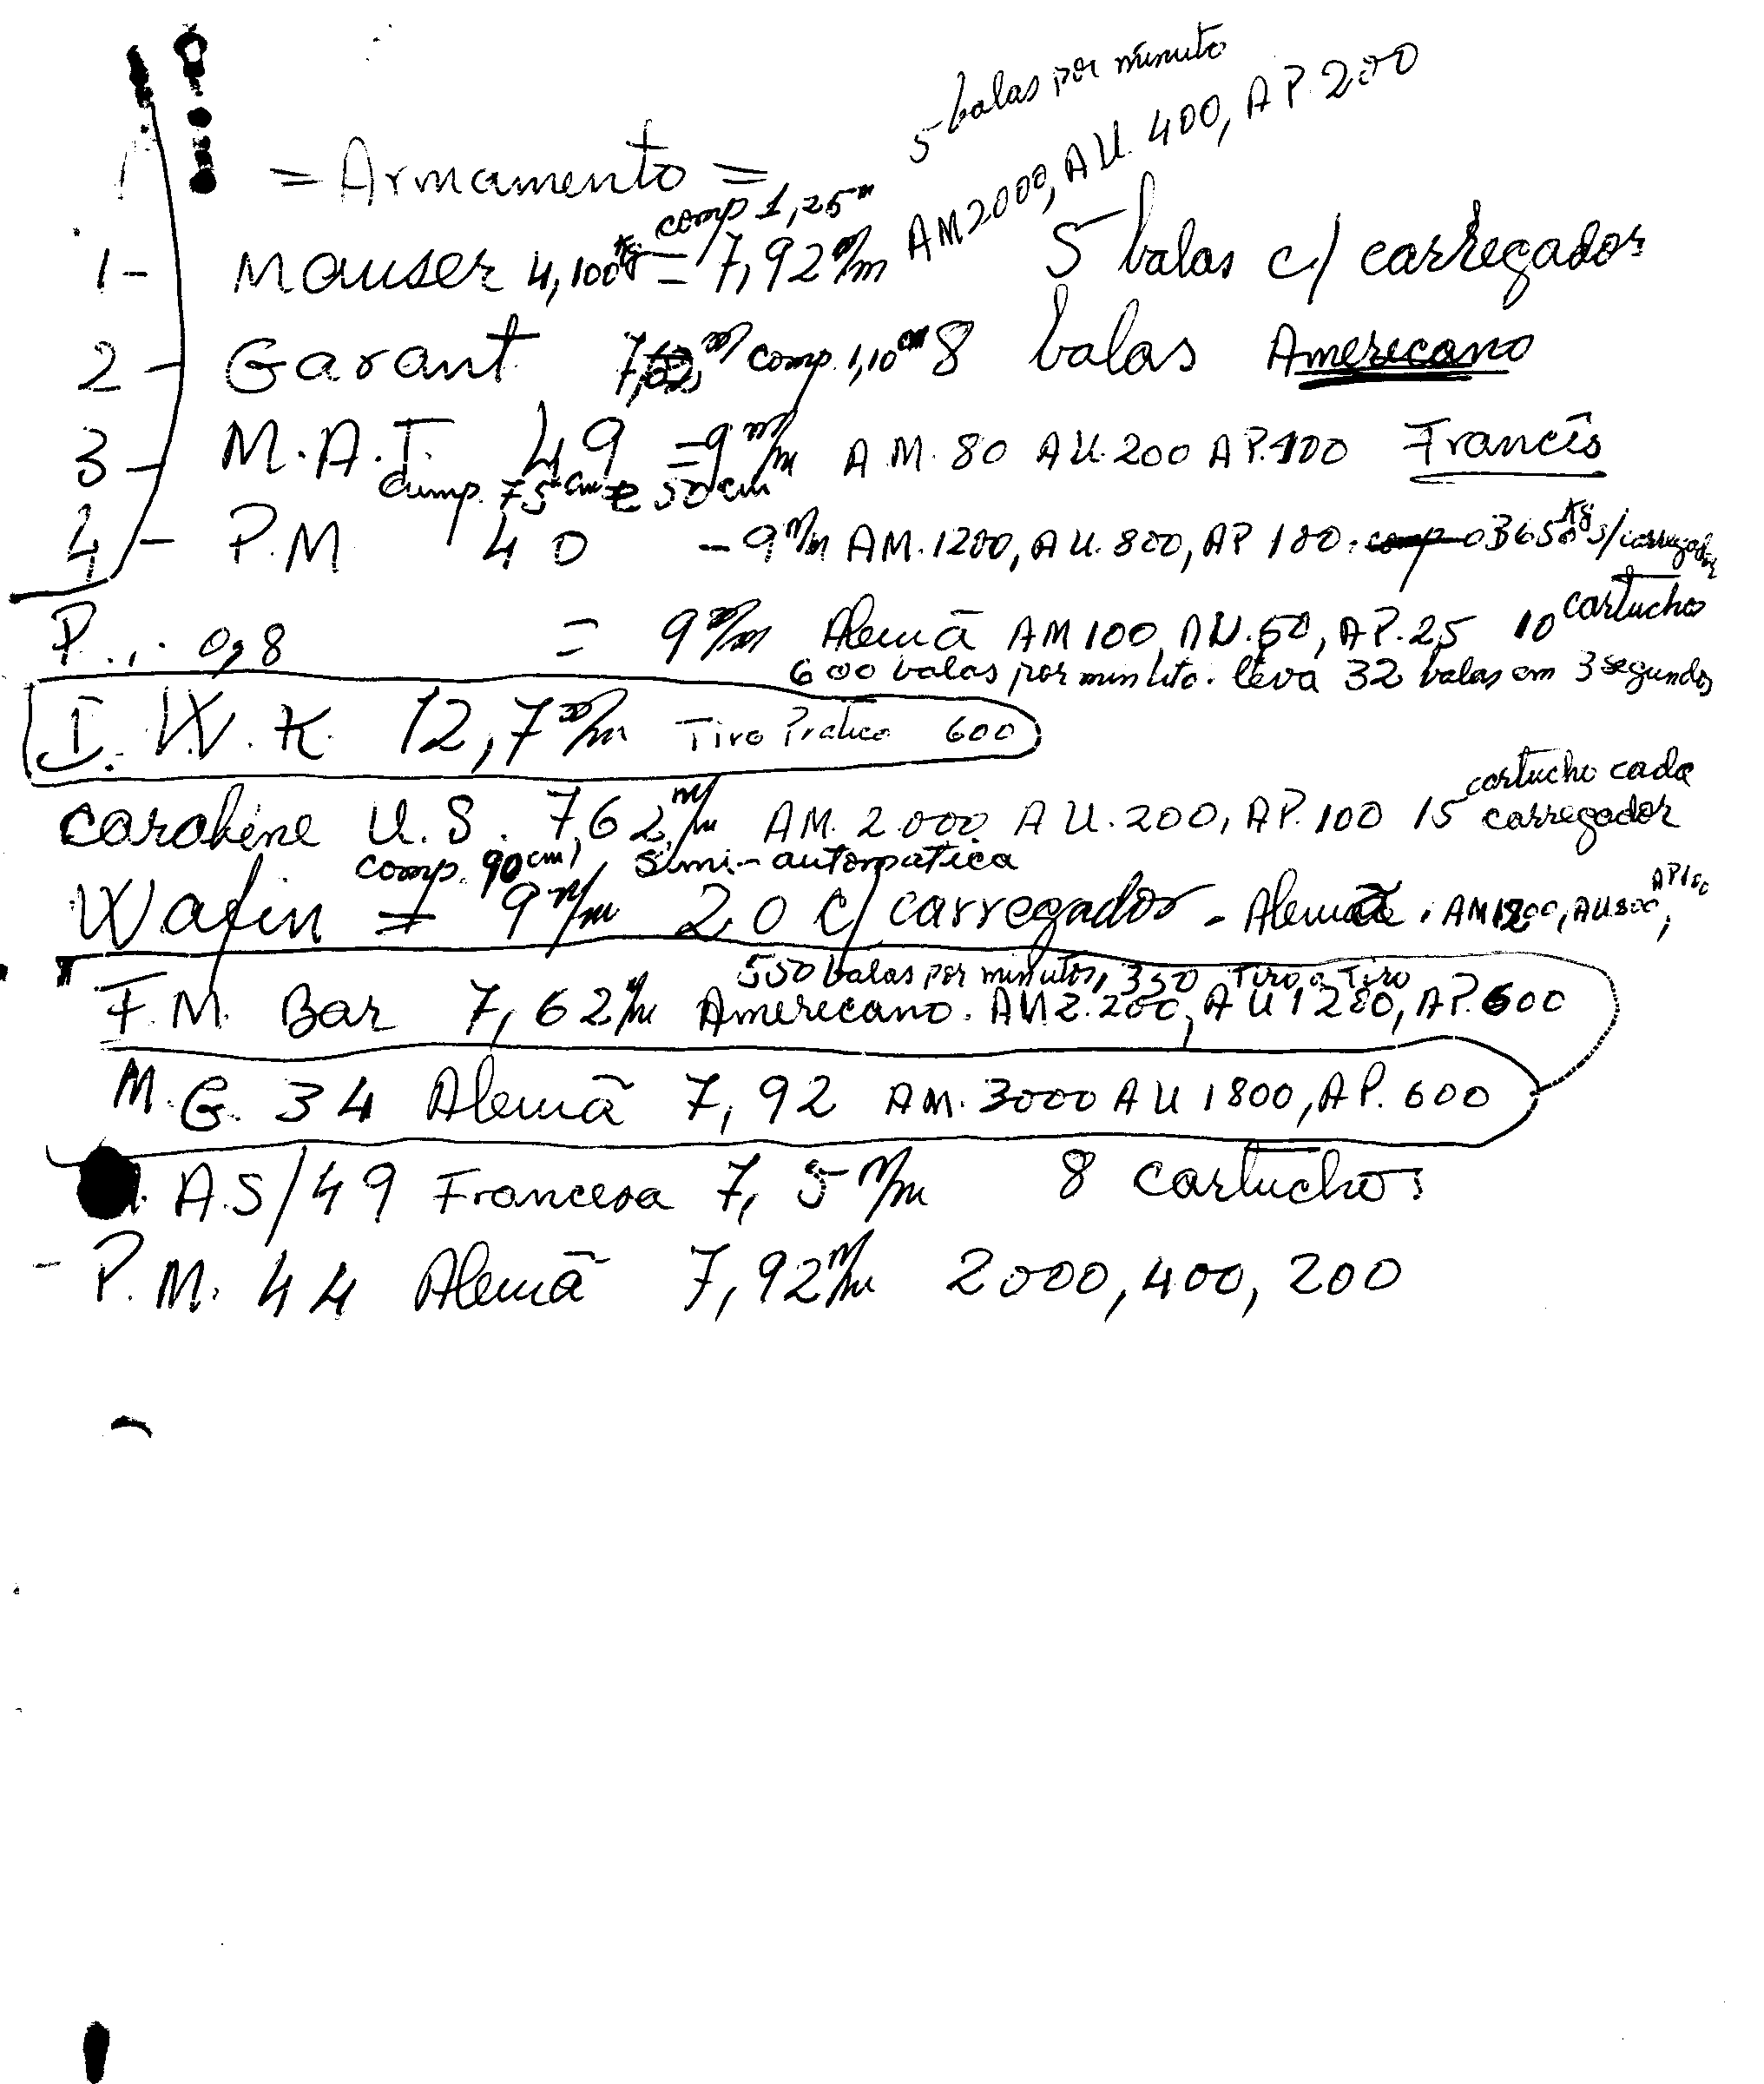 5 balas por minuto
= Armamento =
comp 1,25m
AM 2000, AU. 400, AP. 200
1- Mauser 4,100kg = 7,92 m/m 5 balas c/ carregador
2- Garant 7,62 m/ comp. 1,10 cm 8 balas Americano
3- M.A.T. 49 = 9 m/m A.M. 80 AU. 200 AP. 100 Francês
Cump. 75 cm e 50 cm
4- P.M 40 - 9 m/m AM. 1200, AU. 800, AP 180. s/carregador
P... 0,8 = 9 m/m Alemã AM 100, AU. 50, AP. 25 10 cartuchos
600 balas por minuto. leva 32 balas em 3 segundos
I. W. K. 12,7 m/m Tiro Pratico 600
cartucho cada
Carabine U.S. 7,62 m/m AM. 2.000 AU. 200, AP. 100 15 carregador
comp. 90 cm, Simi-automatica
Wafin = 9 m/m 20 c/ carregador - Alemã. AM 1200, AU 800, AP 180
550 balas por minutos, 350 Tiro a Tiro
F.M. Bar 7,62 m/m Americano. AM 2.200, AU 1200, AP. 600
M.G. 34 Alemã 7,92 AM. 3000 AU 1800, AP. 600
A.S/49 Francesa 7,5 m/m 8 cartuchos
- P.M. 44 Alemã 7,92 m/m 2000, 400, 200